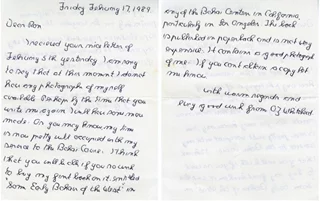 Friday February 17, 1989
Dear Ron
I received your nice letter of
February 8th yesterday. I am sorry
to say that at this moment I do not
have any photograph of myself
available. Perhaps by the time that you
write me again I will have some more
made. As you may know, my time
is now pretty well occupied with my
service to the Bahai Cause. I think
that you will be able, if you so wish
to buy my book on it entitled
"Some Early Bahais of the West" in
any of the Bahai Centers in California
particularly in Los Angeles. The book
is published in paperback and is not very
expensive. It contains a good photograph
of me. If you can't obtain a copy let
me know.
With warm regards and
very good wish from O.Z. Whitehead